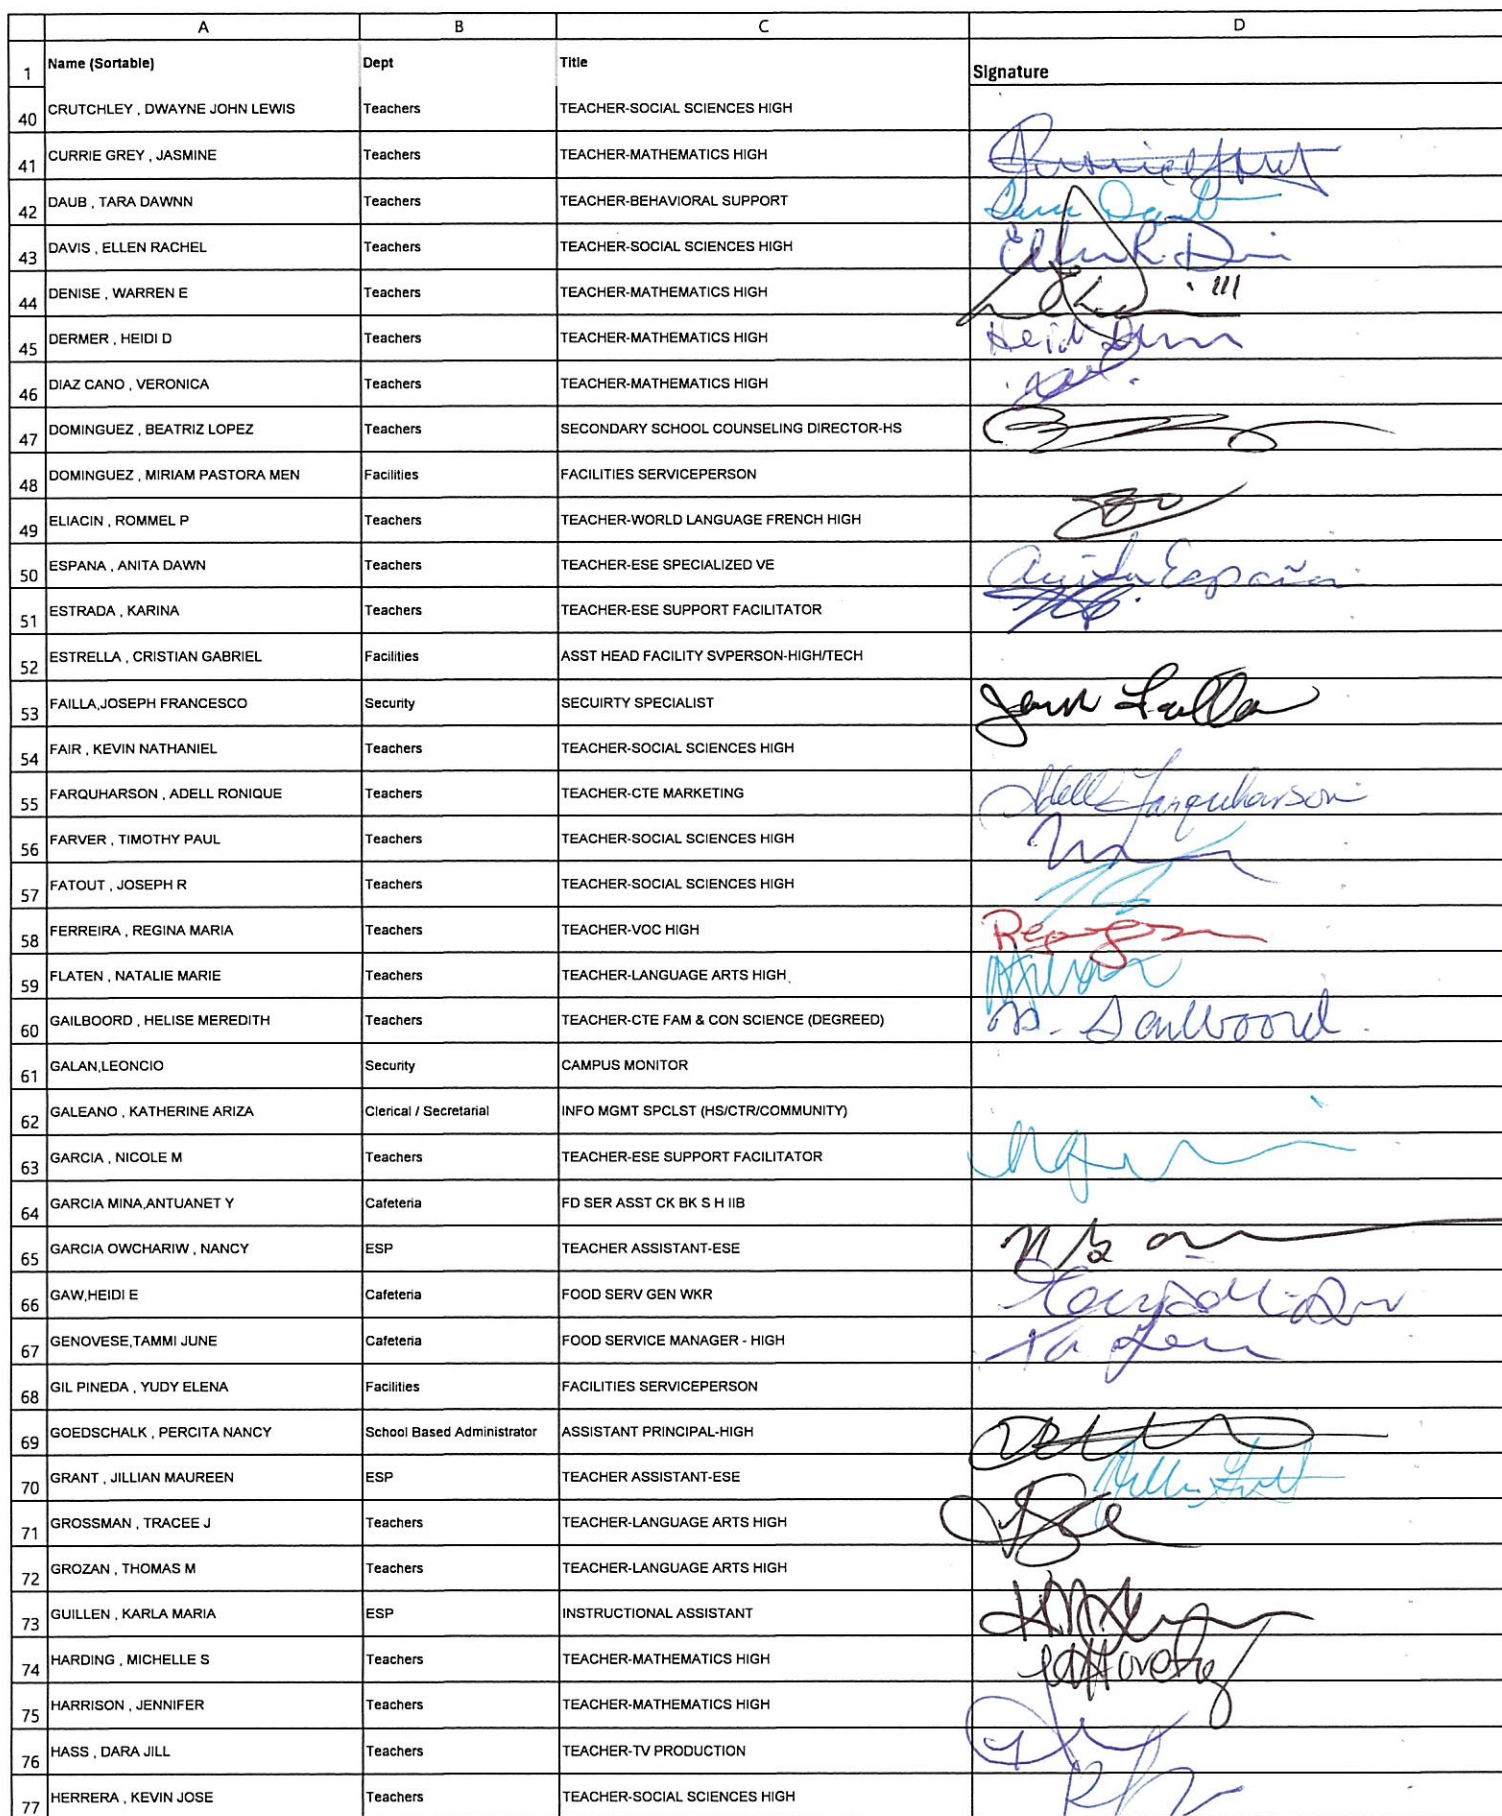 A B C D
1 Name (Sortable) Dept Title Signature
40 CRUTCHLEY , DWAYNE JOHN LEWIS Teachers TEACHER-SOCIAL SCIENCES HIGH
41 CURRIE GREY , JASMINE Teachers TEACHER-MATHEMATICS HIGH
42 DAUB , TARA DAWNN Teachers TEACHER-BEHAVIORAL SUPPORT
43 DAVIS , ELLEN RACHEL Teachers TEACHER-SOCIAL SCIENCES HIGH
44 DENISE , WARREN E Teachers TEACHER-MATHEMATICS HIGH III
45 DERMER , HEIDI D Teachers TEACHER-MATHEMATICS HIGH Heidi
46 DIAZ CANO , VERONICA Teachers TEACHER-MATHEMATICS HIGH
47 DOMINGUEZ , BEATRIZ LOPEZ Teachers SECONDARY SCHOOL COUNSELING DIRECTOR-HS
48 DOMINGUEZ , MIRIAM PASTORA MEN Facilities FACILITIES SERVICEPERSON
49 ELIACIN , ROMMEL P Teachers TEACHER-WORLD LANGUAGE FRENCH HIGH
50 ESPANA , ANITA DAWN Teachers TEACHER-ESE SPECIALIZED VE Anita España
51 ESTRADA , KARINA Teachers TEACHER-ESE SUPPORT FACILITATOR
52 ESTRELLA , CRISTIAN GABRIEL Facilities ASST HEAD FACILITY SVPERSON-HIGH/TECH
53 FAILLA,JOSEPH FRANCESCO Security SECUIRTY SPECIALIST Failla
54 FAIR , KEVIN NATHANIEL Teachers TEACHER-SOCIAL SCIENCES HIGH
55 FARQUHARSON , ADELL RONIQUE Teachers TEACHER-CTE MARKETING Adell Farquharson
56 FARVER , TIMOTHY PAUL Teachers TEACHER-SOCIAL SCIENCES HIGH
57 FATOUT , JOSEPH R Teachers TEACHER-SOCIAL SCIENCES HIGH
58 FERREIRA , REGINA MARIA Teachers TEACHER-VOC HIGH
59 FLATEN , NATALIE MARIE Teachers TEACHER-LANGUAGE ARTS HIGH
60 GAILBOORD , HELISE MEREDITH Teachers TEACHER-CTE FAM & CON SCIENCE (DEGREED) Gailboord
61 GALAN,LEONCIO Security CAMPUS MONITOR
62 GALEANO , KATHERINE ARIZA Clerical / Secretarial INFO MGMT SPCLST (HS/CTR/COMMUNITY)
63 GARCIA , NICOLE M Teachers TEACHER-ESE SUPPORT FACILITATOR
64 GARCIA MINA,ANTUANET Y Cafeteria FD SER ASST CK BK S H IIB
65 GARCIA OWCHARIW , NANCY ESP TEACHER ASSISTANT-ESE
66 GAW,HEIDI E Cafeteria FOOD SERV GEN WKR
67 GENOVESE,TAMMI JUNE Cafeteria FOOD SERVICE MANAGER - HIGH
68 GIL PINEDA , YUDY ELENA Facilities FACILITIES SERVICEPERSON
69 GOEDSCHALK , PERCITA NANCY School Based Administrator ASSISTANT PRINCIPAL-HIGH
70 GRANT , JILLIAN MAUREEN ESP TEACHER ASSISTANT-ESE
71 GROSSMAN , TRACEE J Teachers TEACHER-LANGUAGE ARTS HIGH
72 GROZAN , THOMAS M Teachers TEACHER-LANGUAGE ARTS HIGH
73 GUILLEN , KARLA MARIA ESP INSTRUCTIONAL ASSISTANT
74 HARDING , MICHELLE S Teachers TEACHER-MATHEMATICS HIGH
75 HARRISON , JENNIFER Teachers TEACHER-MATHEMATICS HIGH
76 HASS , DARA JILL Teachers TEACHER-TV PRODUCTION
77 HERRERA , KEVIN JOSE Teachers TEACHER-SOCIAL SCIENCES HIGH